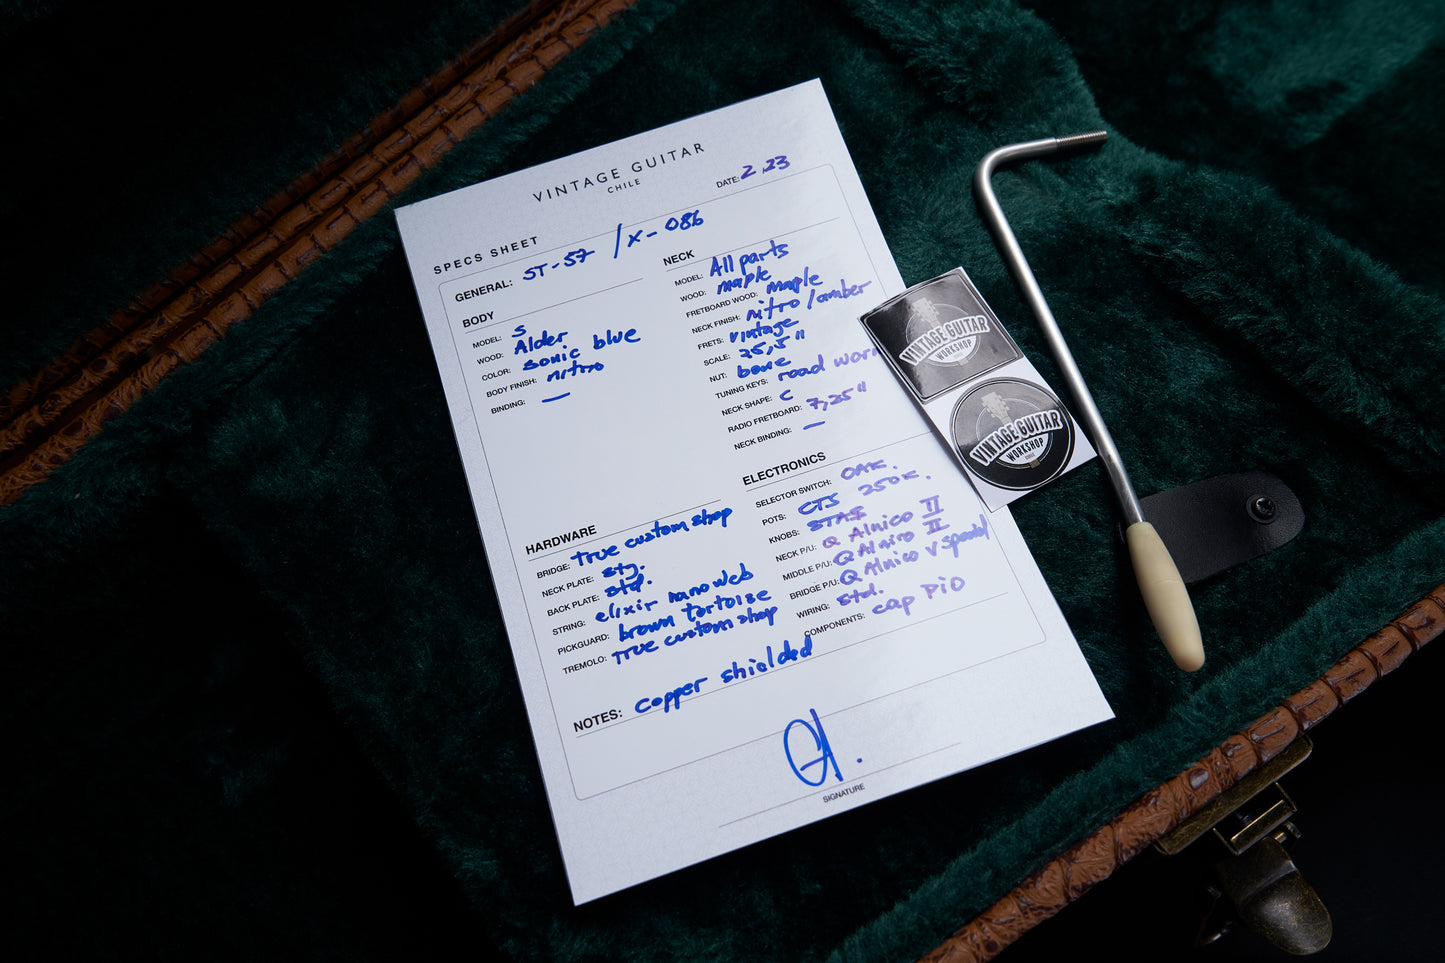 VINTAGE GUITAR
CHILE
SPECS SHEET
DATE: 2.23
GENERAL: ST-57 / X-086
BODY
MODEL: S
WOOD: Alder
COLOR: sonic blue
BODY FINISH: nitro
BINDING: —
NECK
MODEL: All parts
WOOD: maple
FRETBOARD WOOD: maple
NECK FINISH: nitro/amber
FRETS: vintage
SCALE: 25,5"
NUT: bone
TUNING KEYS: road worn
NECK SHAPE: C
RADIO FRETBOARD: 7,25"
NECK BINDING: —
HARDWARE
BRIDGE: True custom shop
NECK PLATE: stg.
BACK PLATE: std.
STRING: elixir nanoweb
PICKGUARD: brown tortoise
TREMOLO: True custom shop
ELECTRONICS
SELECTOR SWITCH: OAK.
POTS: CTS 250K.
KNOBS:
NECK P/U: Q Alnico II
MIDDLE P/U: Q Alnico II
BRIDGE P/U: Q Alnico V
WIRING: std.
COMPONENTS: cap PiO
NOTES: copper shielded
SIGNATURE
VINTAGE GUITAR
WORKSHOP
CHILE
VINTAGE GUITAR
WORKSHOP
CHILE